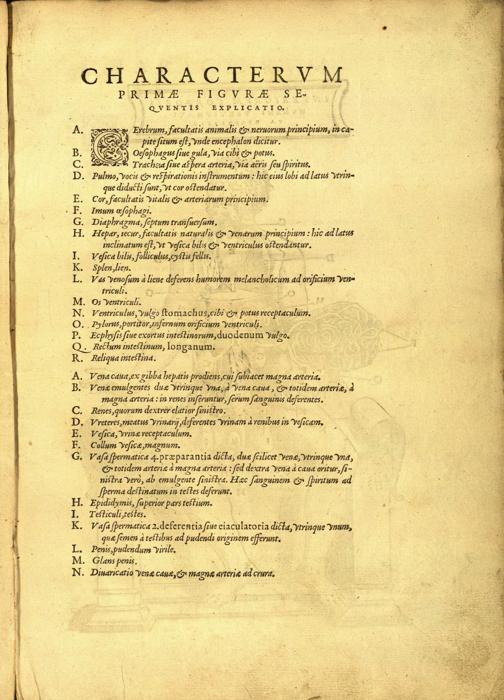 CHARACTERVM
PRIMÆ FIGVRÆ SE-
QVENTIS EXPLICATIO.
A. Cerebrum, facultatis animalis & neruorum principium, in ca-
pite situm est, vnde encephalon dicitur.
B. Oesophagus siue gula, via cibi & potus.
C. Trachœa siue aspera arteria, via aëris seu spiritus.
D. Pulmo, vocis & respirationis instrumentum: hic eius lobi ad latus vtrin-
que diducti sunt, vt cor ostendatur.
E. Cor, facultatis vitalis & arteriarum principium.
F. Imum œsophagi.
G. Diaphragma, septum transuersum.
H. Hepar, iecur, facultatis naturalis & venarum principium: hic ad latus
inclinatum est, vt vesica bilis & ventriculus ostendantur.
I. Vesica bilis, folliculus, cystis fellis.
K. Splen, lien.
L. Vas venosum à liene deferens humorem melancholicum ad orificium ven-
triculi.
M. Os ventriculi.
N. Ventriculus, vulgo stomachus, cibi & potus receptaculum.
O. Pylorus, portitor, infernum orificium ventriculi.
P. Ecphysis siue exortus intestinorum, duodenum vulgo.
Q. Rectum intestinum, longanum.
R. Reliqua intestina.
A. Vena caua, ex gibba hepatis prodiens, cui subiacet magna arteria.
B. Venæ emulgentes duæ vtrinque vna, à vena caua, & totidem arteriæ, à
magna arteria: in renes inseruntur, serum sanguinis deferentes.
C. Renes, quorum dexter elatior sinistro.
D. Vreteres, meatus vrinarij, deferentes vrinam à renibus in vesicam.
E. Vesica, vrinæ receptaculum.
F. Collum vesicæ, magnum.
G. Vasa spermatica 4. præparantia dicta, duæ scilicet venæ, vtrinque vna,
& totidem arteriæ à magna arteria: sed dextra vena à caua oritur, si-
nistra verò, ab emulgente sinistra. Hæc sanguinem & spiritum ad
sperma destinatum in testes deferunt.
H. Epididymis, superior pars testium.
I. Testiculi, testes.
K. Vasa spermatica 2. deferentia siue eiaculatoria dicta, vtrinque vnum,
quæ semen à testibus ad pudendi originem efferunt.
L. Penis, pudendum virile.
M. Glans penis.
N. Diuaricatio venæ cauæ, & magnæ arteriæ ad crura.